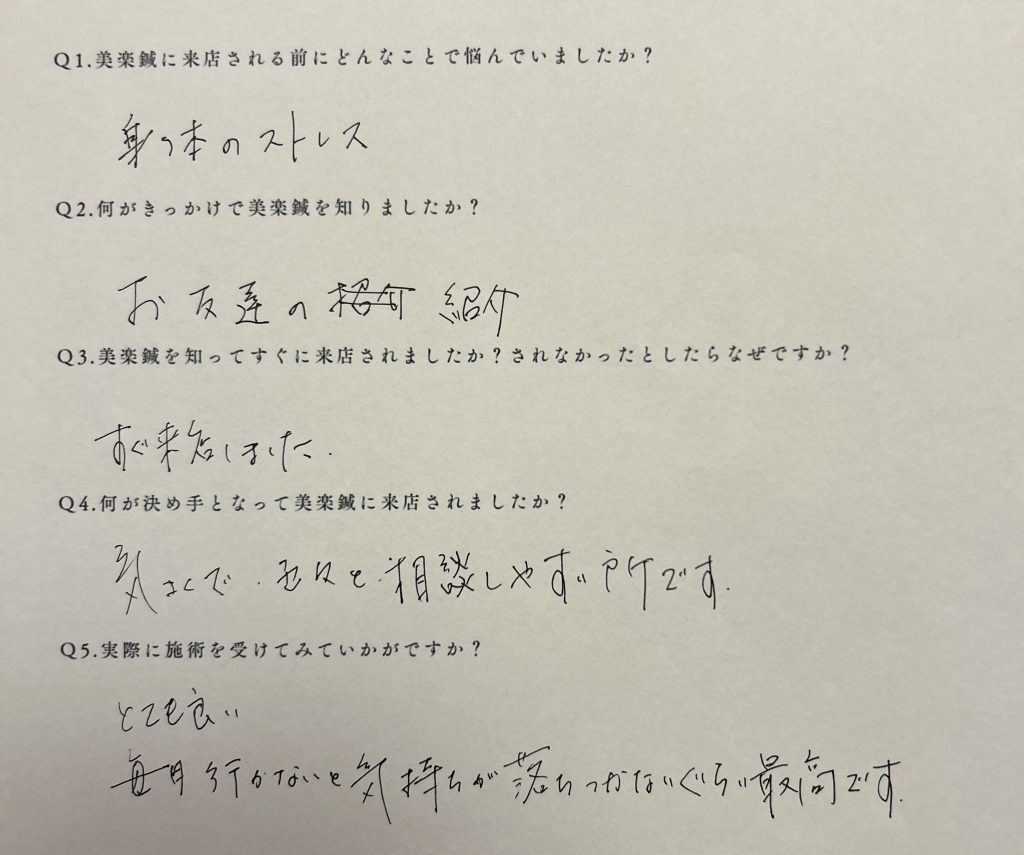 Q1.美楽鍼に来店される前にどんなことで悩んでいましたか？
身体のストレス
Q2.何がきっかけで美楽鍼を知りましたか？
お友達の紹介
Q3.美楽鍼を知ってすぐに来店されましたか？されなかったとしたらなぜですか？
すぐ来店しました.
Q4.何が決め手となって美楽鍼に来店されましたか？
気さくで、色々と相談しやすい所です.
Q5.実際に施術を受けてみていかがですか？
とても良い
毎月行かないと気持ちが落ちつかないぐらい最高です.